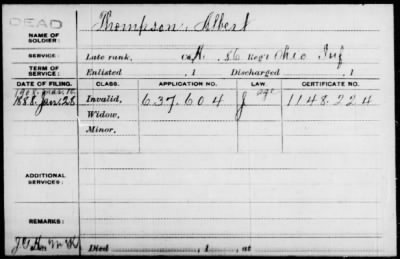 DEAD
Thompson, Albert
NAME OF SOLDIER:
SERVICE: Late rank, Co. H, 86 Reg't Ohio Inf
TERM OF SERVICE: Enlisted , 1 Discharged , 1
DATE OF FILING. CLASS. APPLICATION NO. LAW. CERTIFICATE NO.
1908. Mar. 16 age
1888. Jan. 28 Invalid, 637.604 J 1148.224
Widow,
Minor,
ADDITIONAL SERVICES:
REMARKS:
Died , 1 , at